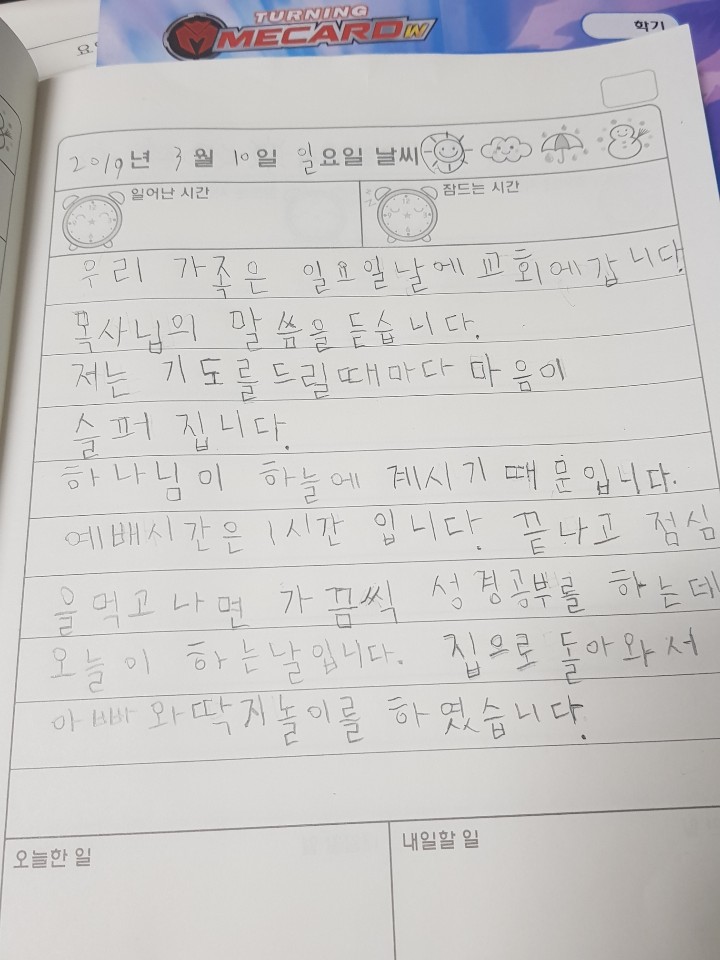 TURNING
MECARD W
학기
요
2019년 3월 10일 일요일 날씨
일어난 시간
잠드는 시간
우리 가족은 일요일날에 교회에갑니다.
목사님의 말씀을 듣습니다.
저는 기도를드릴때마다 마음이
슬퍼 집니다.
하나님이 하늘에 계시기 때문입니다.
예배시간은 1시간 입니다. 끝나고 점심
을먹고나면 가끔씩 성경공부를 하는데
오늘이 하는날입니다. 집으로 돌아와서
아빠와딱지놀이를 하였습니다.
오늘한 일
내일할 일